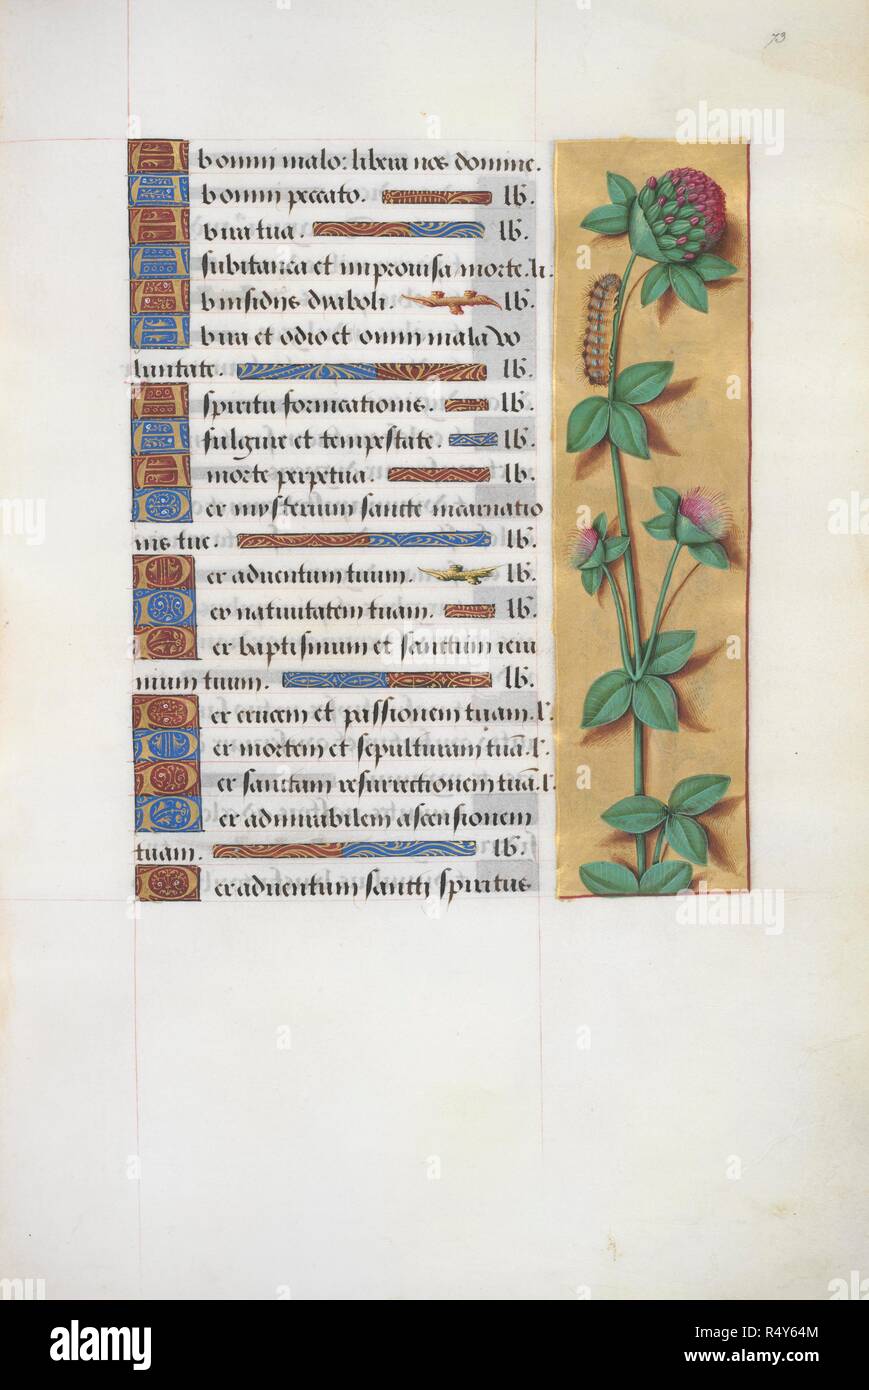 73
Ab omni malo: libera nos domine.
Ab omni peccato. lb̄.
Ab ira tua. lb̄.
A subitanea et improvisa morte. li.
Ab insidiis dyaboli. lb̄.
Ab ira et odio et omni mala vo
luntate. lb̄.
A spiritu fornicationis. lb̄.
A fulgure et tempestate. lb̄.
A morte perpetua. lb̄.
Per mysterium sancte incarnatio
nis tue. lb̄.
Per adventum tuum. lb̄.
Per nativitatem tuam. lb̄.
Per baptismum et sanctum ieiu
nium tuum. lb̄.
Per crucem et passionem tuam. l.
Per mortem et sepulturam tuā. l.
Per sanctam resurrectionem tuā. l.
Per admirabilem ascensionem
tuam. lb̄.
Per adventum sancti spiritus
alamy
alamy
Image ID: R4Y64M
www.alamy.com